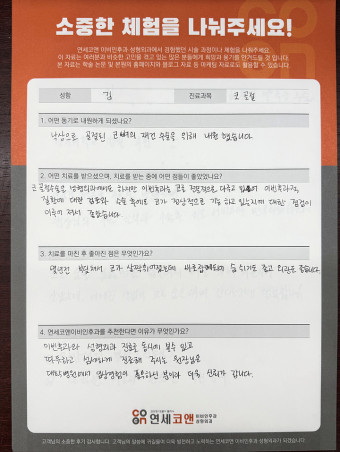 소중한 체험을 나눠주세요!
연세코앤이비인후과 성형외과에서 경험했던 시술 과정이나 체험을 나눠주세요.
이 자료는 여러분과 비슷한 고민을 겪고 있는 많은 분들에게 희망과 용기를 안겨드릴 것 입니다.
본 자료는 학술 논문 및 본원의 홈페이지와 블로그 자료 등 마케팅 자료로도 활용될 수 있습니다.
성함 김 진료과목 코 골절
1. 어떤 동기로 내원하게 되셨나요?
낙상으로 골절된 코뼈의 재건 수술을 위해 내원했습니다.
2. 어떤 치료를 받으셨으며, 치료를 받는 중에 어떤 점들이 좋았었나요?
코 골절수술은 성형외과에서도 하지만 이비인후과는 코를 전문적으로 다루고 있어 이비인후과적
질환에 대한 검토와 수술 후에도 코가 정상적으로 기능 하고 있는지에 대한 점검이
이루어 져서 좋았습니다.
3. 치료를 마친 후 좋아진 점은 무엇인가요?
코가 숨 쉬기도 좋고 외관도 좋습니다.
4. 연세코앤이비인후과를 추천한다면 이유가 무엇인가요?
이비인후과와 성형외과 진료를 동시에 볼수 있고
따뜻하고 섬세하게 진료해 주시는 원장님은
대학병원에서 임상경험이 풍부하신 분이라 더욱 신뢰가 갑니다.
연세코앤 이비인후과 성형외과
고객님의 소중한 후기 감사합니다. 고객님의 말씀에 귀담아 더욱 발전하고 노력하는 연세코앤 이비인후과 성형외과가 되겠습니다.